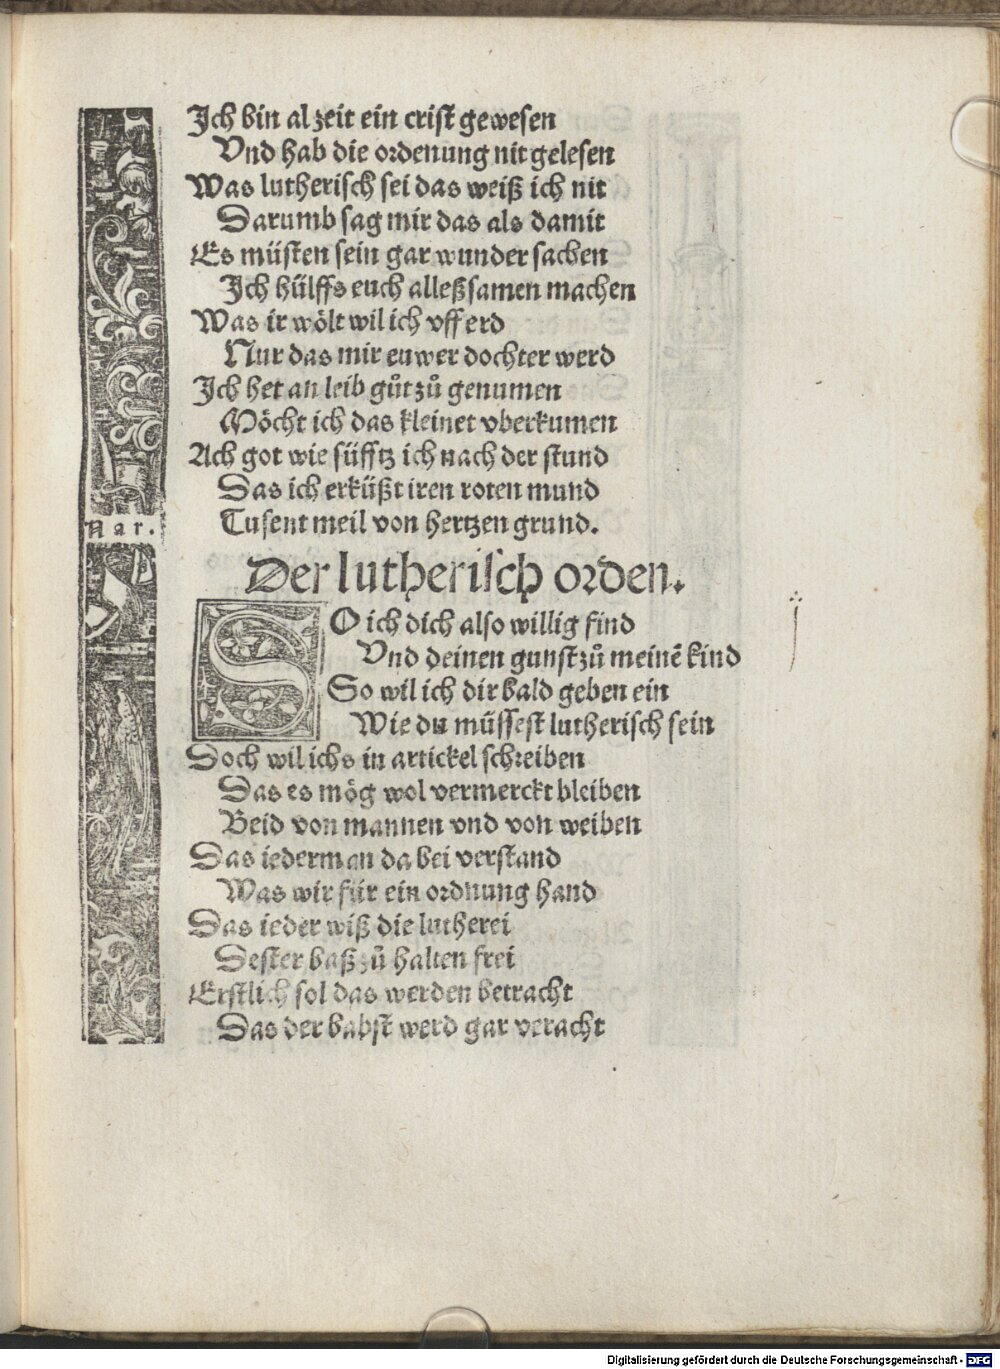 Ich bin alzeit ein crist gewesen
Vnd hab die ordenung nit gelesen
Was lutherisch sei das weiß ich nit
Darumb sag mir das als damit
Es müsten sein gar wunder sachen
Ich hülffs euch alleßsamen machen
Was ir wölt wil ich vff erd
Nur das mir euwer dochter werd
Ich het an leib gůt zů genumen
Möcht ich das kleinet vberkumen
Ach got wie süfftz ich nach der stund
Das ich erküßt iren roten mund
Nar.
Tusent meil von hertzen grund.
Der lutherisch orden.
SO ich dich also willig find
Vnd deinen gunst zů meinē kind
So wil ich dir bald geben ein
Wie du müssest lutherisch sein
Doch wil ichs in artickel schreiben
Das es mög wol vermerckt bleiben
Beid von mannen vnd von weiben
Das iederman da bei verstand
Was wir für ein ordnung hand
Das ieder wiß die lutherei
Dester baß zů halten frei
Erstlich sol das werden betracht
Das der babst werd gar veracht
Digitalisierung gefördert durch die Deutsche Forschungsgemeinschaft - DFG